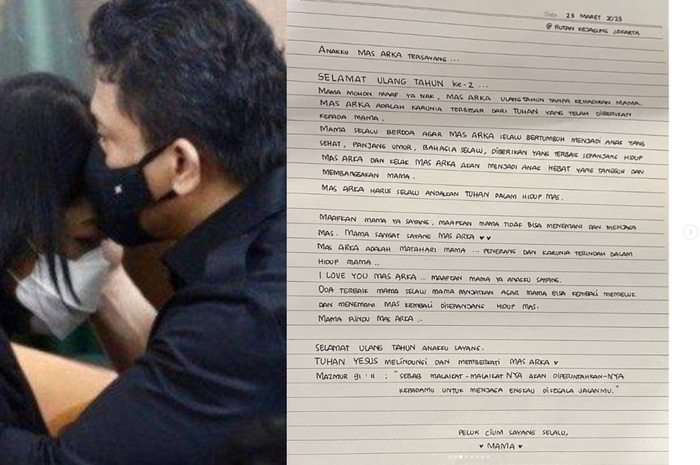 Date 23 MARET 2023
@ RUTAN KEJAGUNG JAKARTA
ANAKKU MAS ARKA TERSAYANG ...
SELAMAT ULANG TAHUN KE-2 ...
MAMA MOHON MAAF YA NAK, MAS ARKA ULANG TAHUN TANPA KEHADIRAN MAMA.
MAS ARKA ADALAH KARUNIA TERBESAR DARI TUHAN YANG TELAH DIBERIKAN
KEPADA MAMA.
MAMA SELALU BERDOA AGAR MAS ARKA SELALU BERTUMBUH MENJADI ANAK YANG
SEHAT, PANJANG UMUR, BAHAGIA SELALU, DIBERIKAN YANG TERBAIK SEPANJANG HIDUP
MAS ARKA DAN KELAK MAS ARKA AKAN MENJADI ANAK HEBAT YANG TANGGUH DAN
MEMBANGGAKAN MAMA.
MAS ARKA HARUS SELALU ANDALKAN TUHAN DALAM HIDUP MAS.
MAAFKAN MAMA YA SAYANG, MAAFKAN MAMA TIDAK BISA MENEMANI DAN MENJAGA
MAS. MAMA SANGAT SAYANG MAS ARKA ♥♥
MAS ARKA ADALAH MATAHARI MAMA ... PENERANG DAN KARUNIA TERINDAH DALAM
HIDUP MAMA ..
I LOVE YOU MAS ARKA ... MAAFKAN MAMA YA ANAKKU SAYANG.
DOA TERBAIK MAMA SELALU MAMA PANJATKAN AGAR MAMA BISA KEMBALI MEMELUK
DAN MENEMANI MAS KEMBALI DISEPANJANG HIDUP MAS.
MAMA RINDU MAS ARKA ..
SELAMAT ULANG TAHUN ANAKKU SAYANG.
TUHAN YESUS MELINDUNGI DAN MEMBERKATI MAS ARKA ♥
MAZMUR 91 : 11 : "SEBAB MALAIKAT-MALAIKATNYA AKAN DIPERINTAHKAN-NYA
KEPADAMU UNTUK MENJAGA ENGKAU DI SEGALA JALANMU."
PELUK CIUM SAYANG SELALU,
♥ MAMA ♥